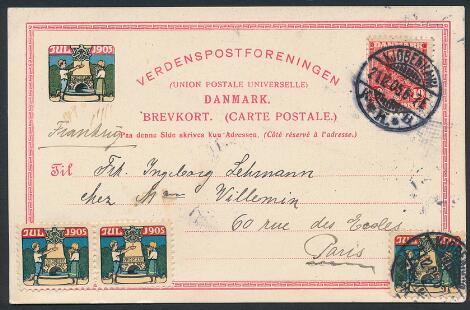 JUL 1905
VERDENSPOSTFORENINGEN
(UNION POSTALE UNIVERSELLE)
DANMARK.
BREVKORT. (CARTE POSTALE.)
Paa denne Side skrives kun Adressen. (Côté réservé à l'adresse.)
Frankrig
Til Frk. Ingeborg Lehmann
chez Mme Villemin
60 rue des Ecoles
Paris
JUL 1905
JUL 1905